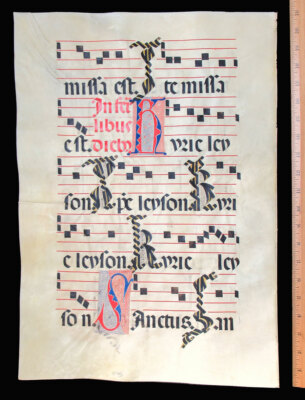 missa est. Ite missa
In fe
libus
est. diebꝰ Kyrie ley
son. Xp̄e leyson. Kyri
e leyson. Kyrie ley
son Sanctus. San